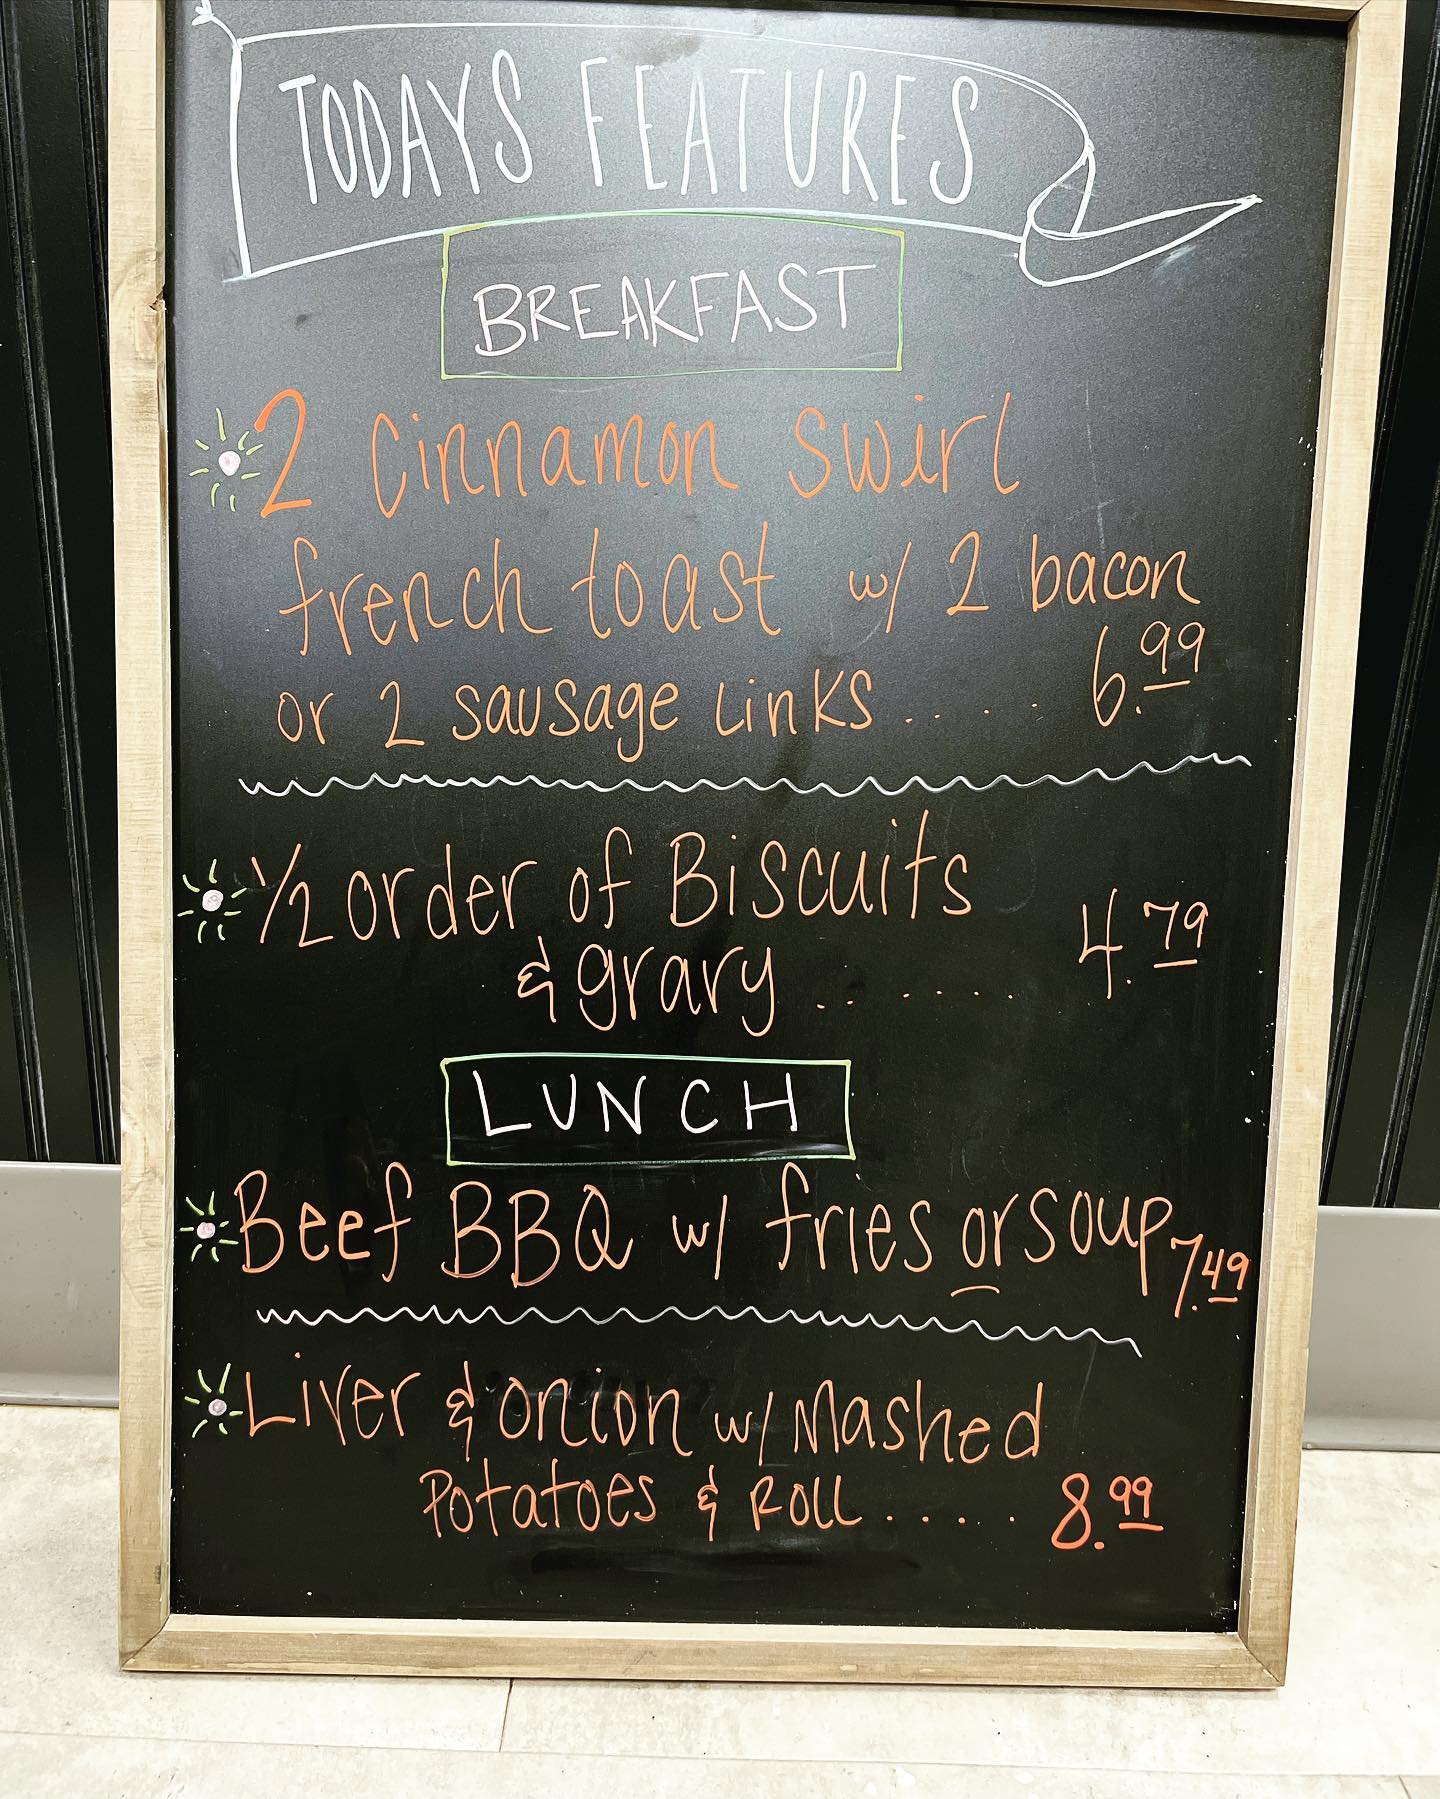 TODAYS FEATURES
BREAKFAST
2 Cinnamon Swirl
french toast w/ 2 bacon
or 2 sausage Links..... 6.99
1/2 order of Biscuits
& gravy ....... 4.79
LUNCH
Beef BBQ w/ fries or soup 7.49
Liver & onion w/ Mashed
Potatoes & Roll..... 8.99